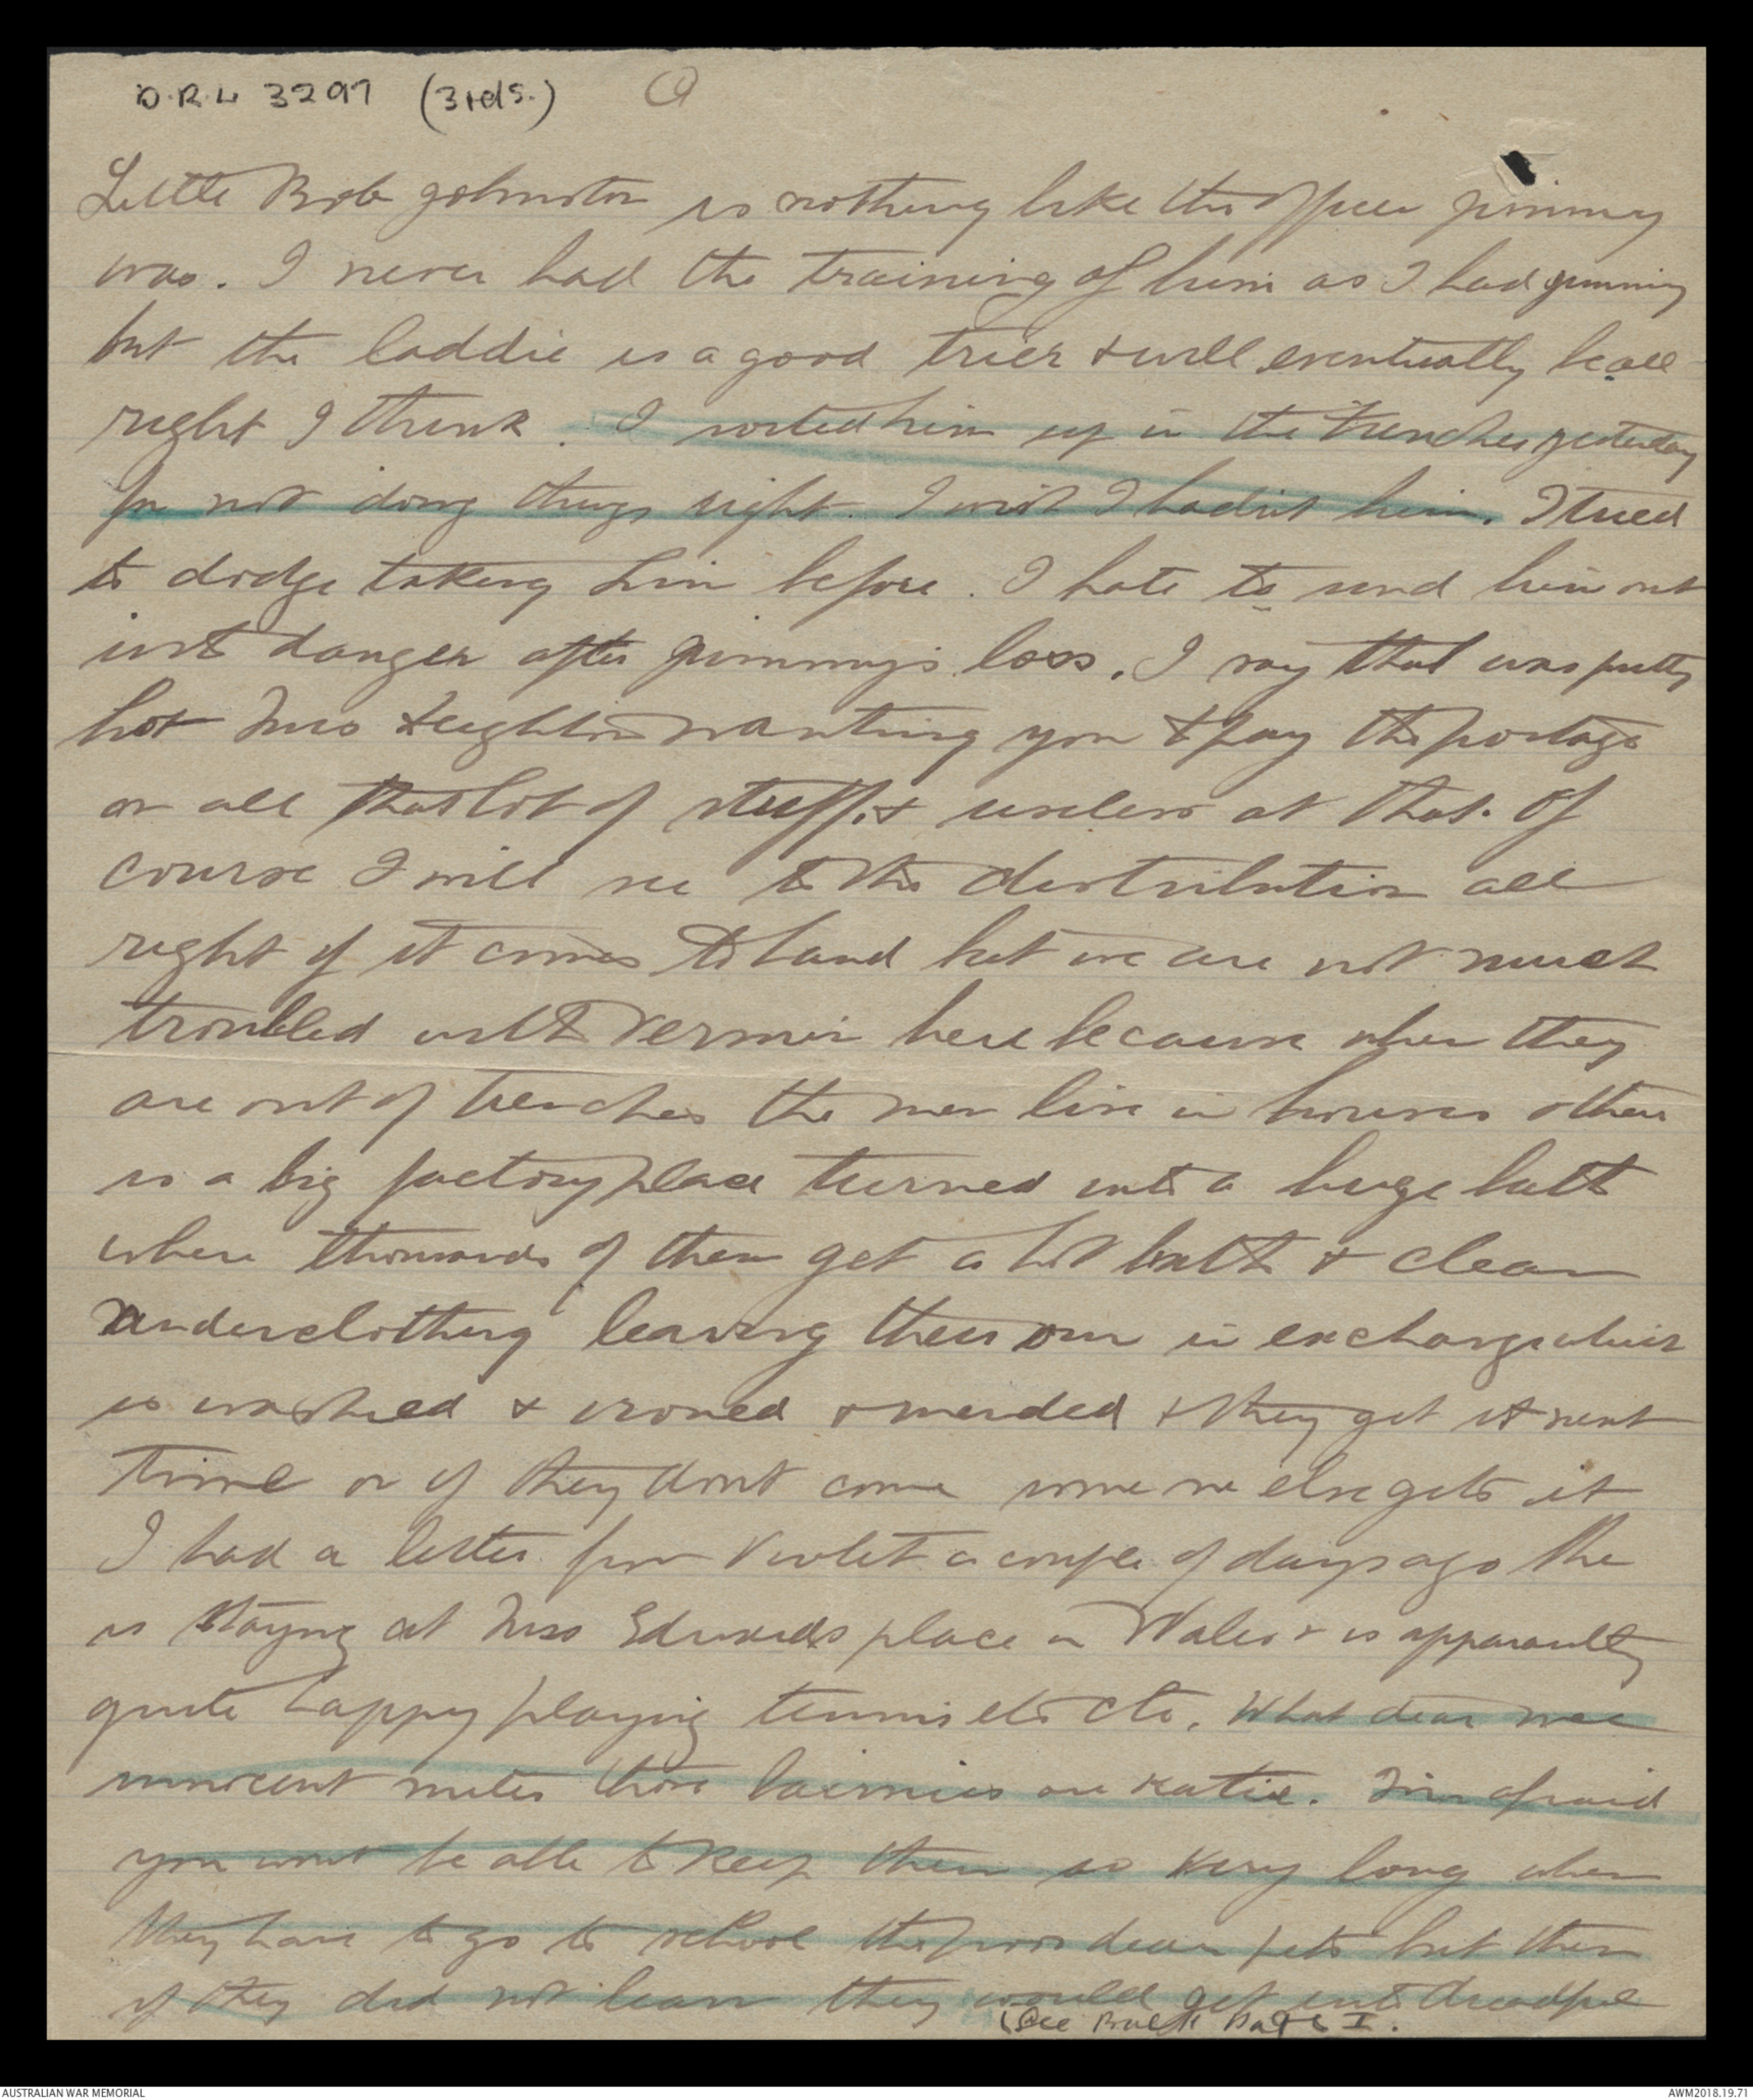 D.R.L 3297 (3rds.)
Little Bob Johnston is nothing like the officer Jimmy
was. I never had the training of him as I had Jimmy
but the laddie is a good trier & will eventually be all
right I think. I sorted him up in the trenches yesterday
for not doing things right. I wish I hadn't him. I tried
to dodge taking him before. I hate to send him out
into danger after Jimmy's loss. I say that was pretty
hot Mrs wanting you to pay the postage
on all that lot of stuff & useless at that. Of
course I will see to the distribution all
right if it comes to hand but we are not much
troubled with vermin here because when they
are out of trenches the men live in houses & there
is a big factory place turned into a huge bath
where thousands of them get a hot bath & clean
underclothing leaving their own in exchange which
is washed & ironed & mended & they get it next
time or if they dont come some one else gets it
I had a letter from Violet a couple of days ago she
is staying at Miss Edwards place in Wales & is apparantly
quite happy playing tennis etc etc. What dear wee
innocent mites those bairnies are Katie. I'm afraid
you wont be able to keep them so very long when
they have to go to school the poor dear pets but then
if they did not learn they would get into dreadful
(See Back Page I.
AUSTRALIAN WAR MEMORIAL
AWM2018.19.71